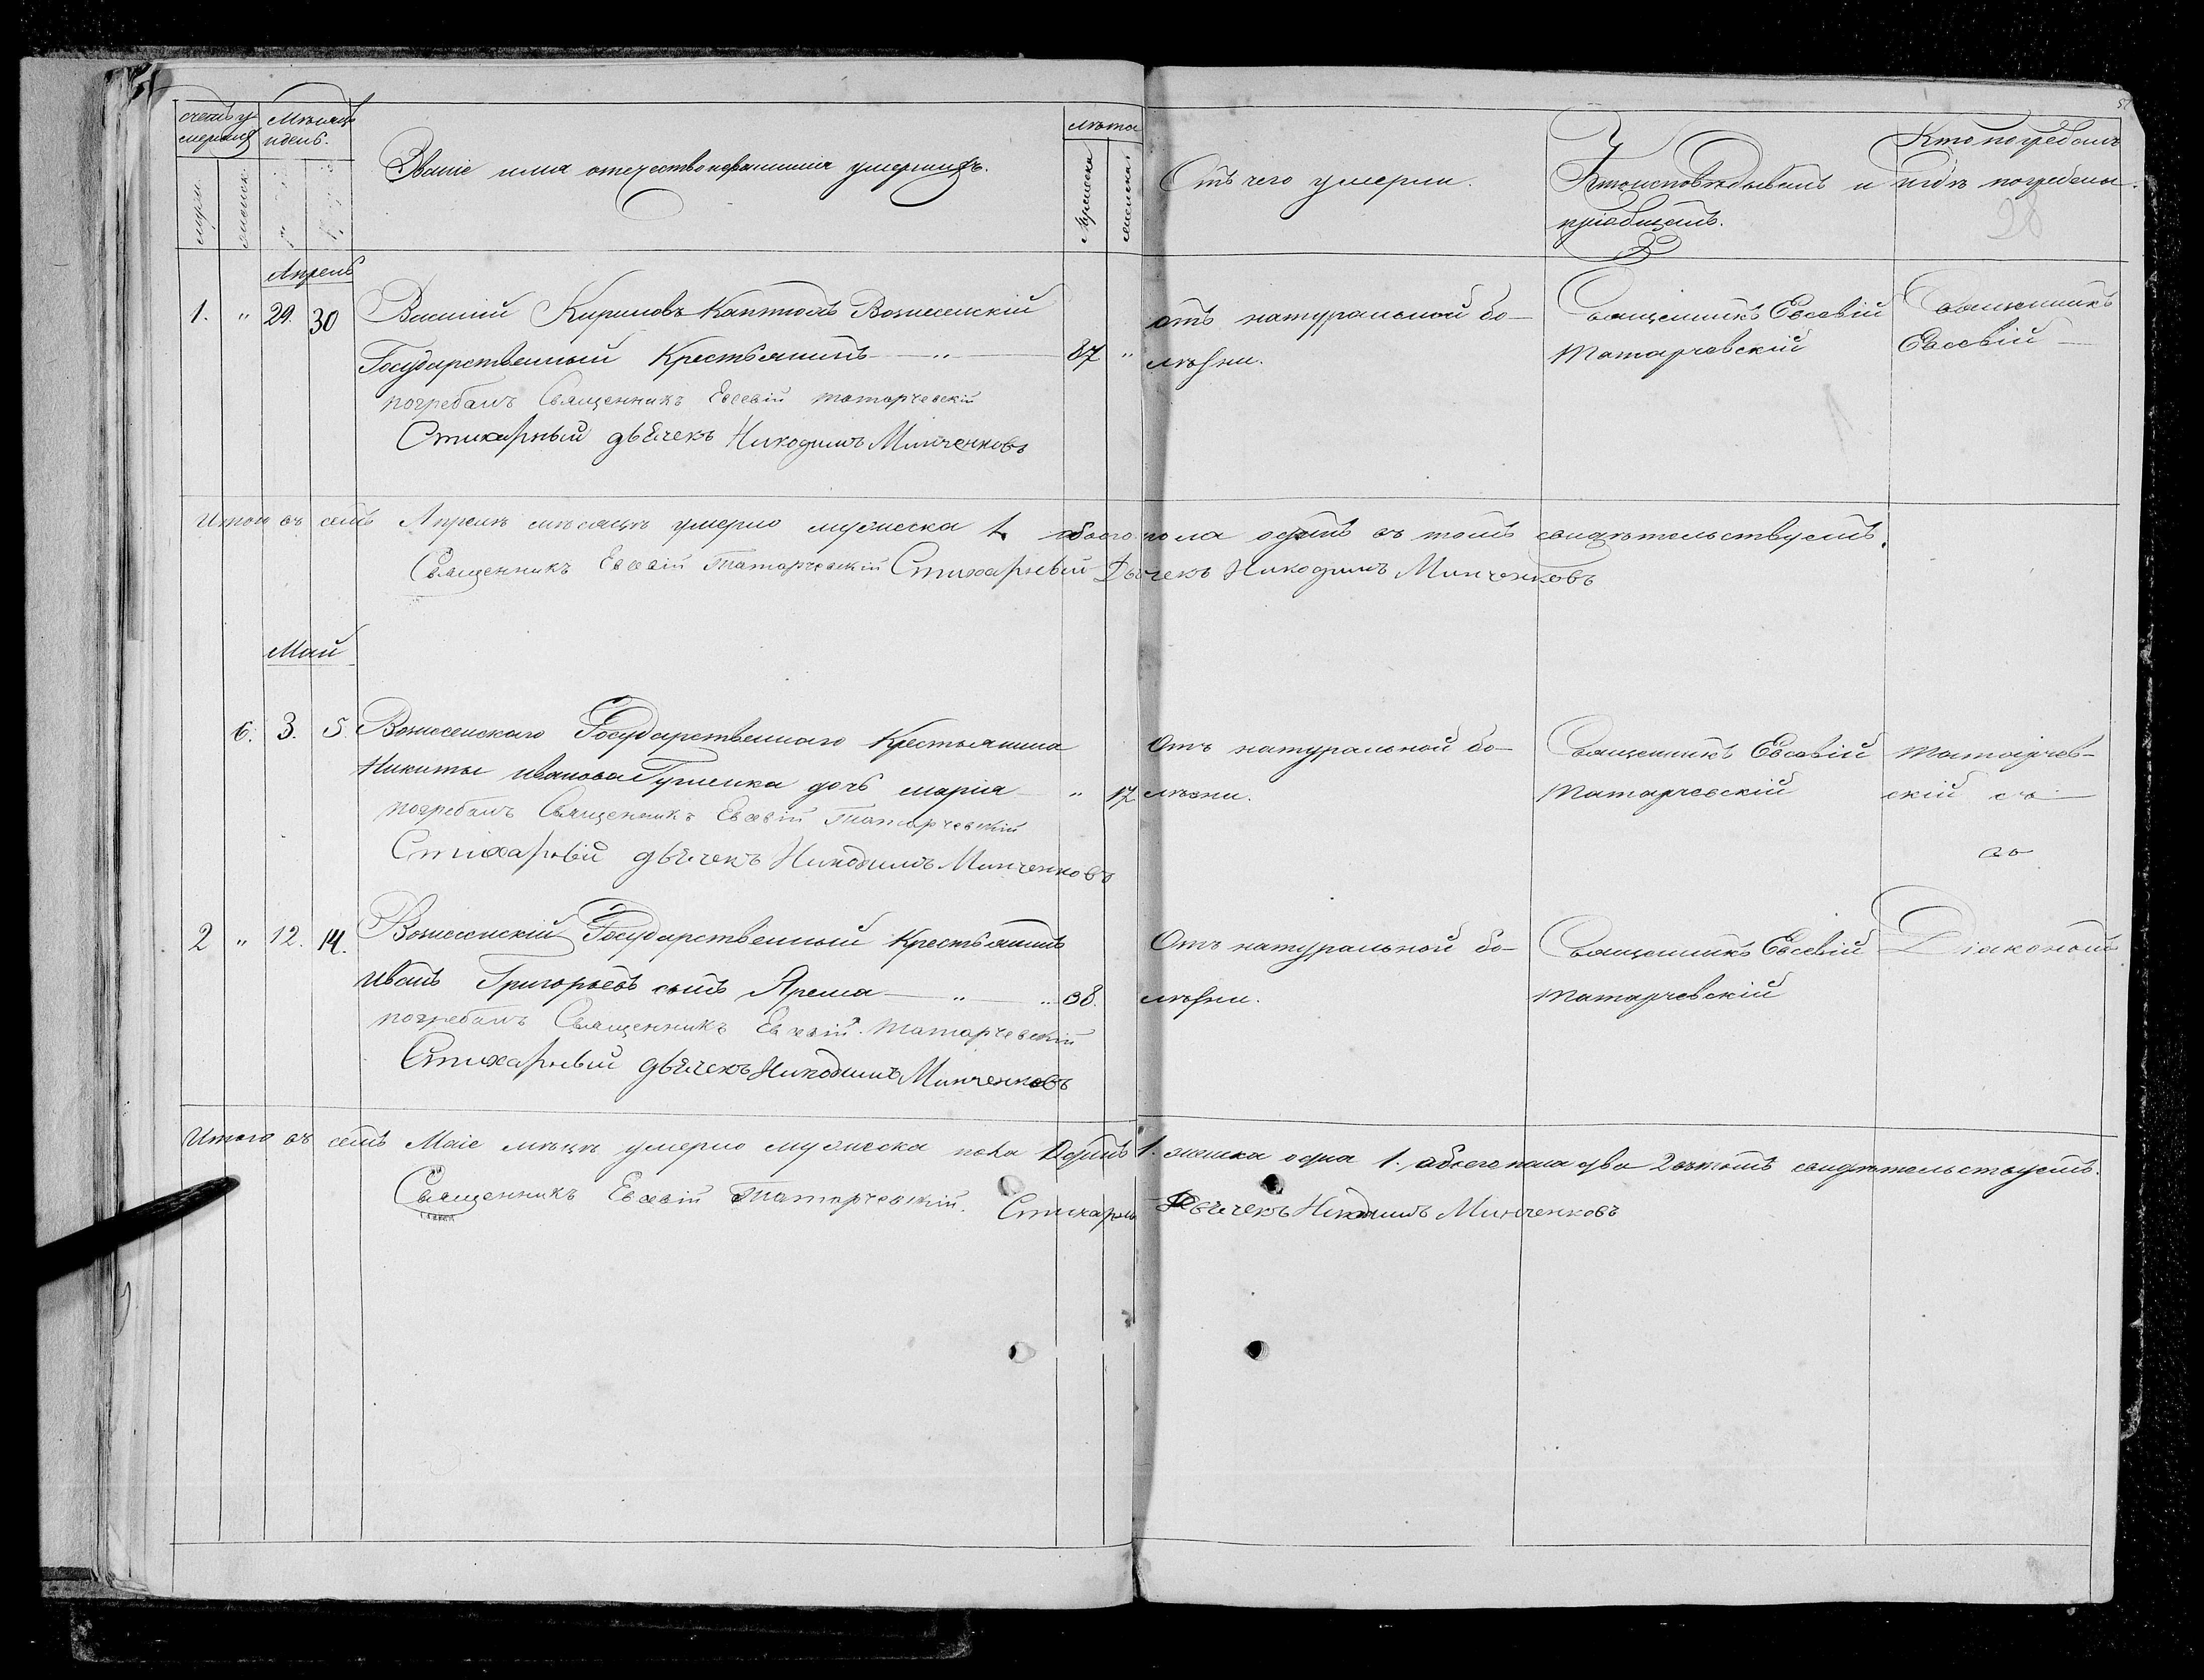 счетъ умершихъ
Мѣсяцъ и день.
Званіе имя отечество и фамилія умершихъ.
лѣта
мужеска
женска
Отъ чего умерли.
Кто исповѣдывалъ и пріобщалъ.
Кто погребалъ и гдѣ погребены.
28
Апрель
1. " 29. 30 Василій Кириловъ Каптюлъ Вознесенскій
Государственный Крестьянинъ — " — 87 "
отъ натуральной бо-
лѣзни.
Священникъ Евсевій
Татарчевскій
Священникъ
Евсевій —
погребалъ Священникъ Евсевій Татарчевскій
Стихарный дьячекъ Никодимъ Минченковъ
Итого въ семъ Апрелѣ мѣсяцѣ умерло мужеска 1. обоего пола одинъ въ томъ свидѣтельствуемъ.
Священникъ Евсевій Татарчевскій Стихарный Дьячекъ Никодимъ Минченковъ
Май
6. 3. 5. Вознесенскаго Государственнаго Крестьянина
Никиты Иванова дочь Марія — " 17
Отъ натуральной бо-
лѣзни.
Священникъ Евсевій
Татарчевскій
Татарчев-
скій съ —
погребалъ Священникъ Евсевій Татарчевскій
Стихарный дьячекъ Никодимъ Минченковъ
2 " 12. 14. Вознесенскій Государственный Крестьянинъ
Иванъ Григорьевъ сынъ Ярема — " — " 38.
Отъ натуральной бо-
лѣзни.
Священникъ Евсевій
Татарчевскій
Діакономъ
погребалъ Священникъ Евсевій Татарчевскій
Стихарный дьячекъ Никодимъ Минченковъ
Итого въ семъ Маіе мѣцѣ умерло мужеска пола Одинъ 1. женска одна 1. обоего пола два 2 въ томъ свидѣтельствуемъ.
Священникъ Евсевій Татарчевскій. Стихарны Дьячекъ Никодимъ Минченковъ